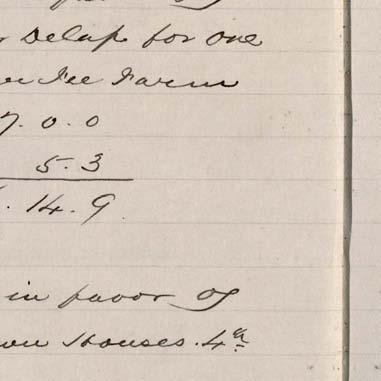 Delap for one
Fee Farm
7. 0. 0
5. 3
. 14. 9
in favor of
Houses. 4th